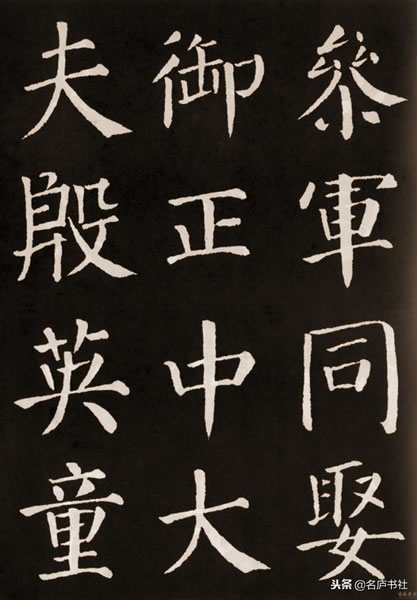 叅軍同娶
御正中大
夫殷英童
头条 @名庐书社